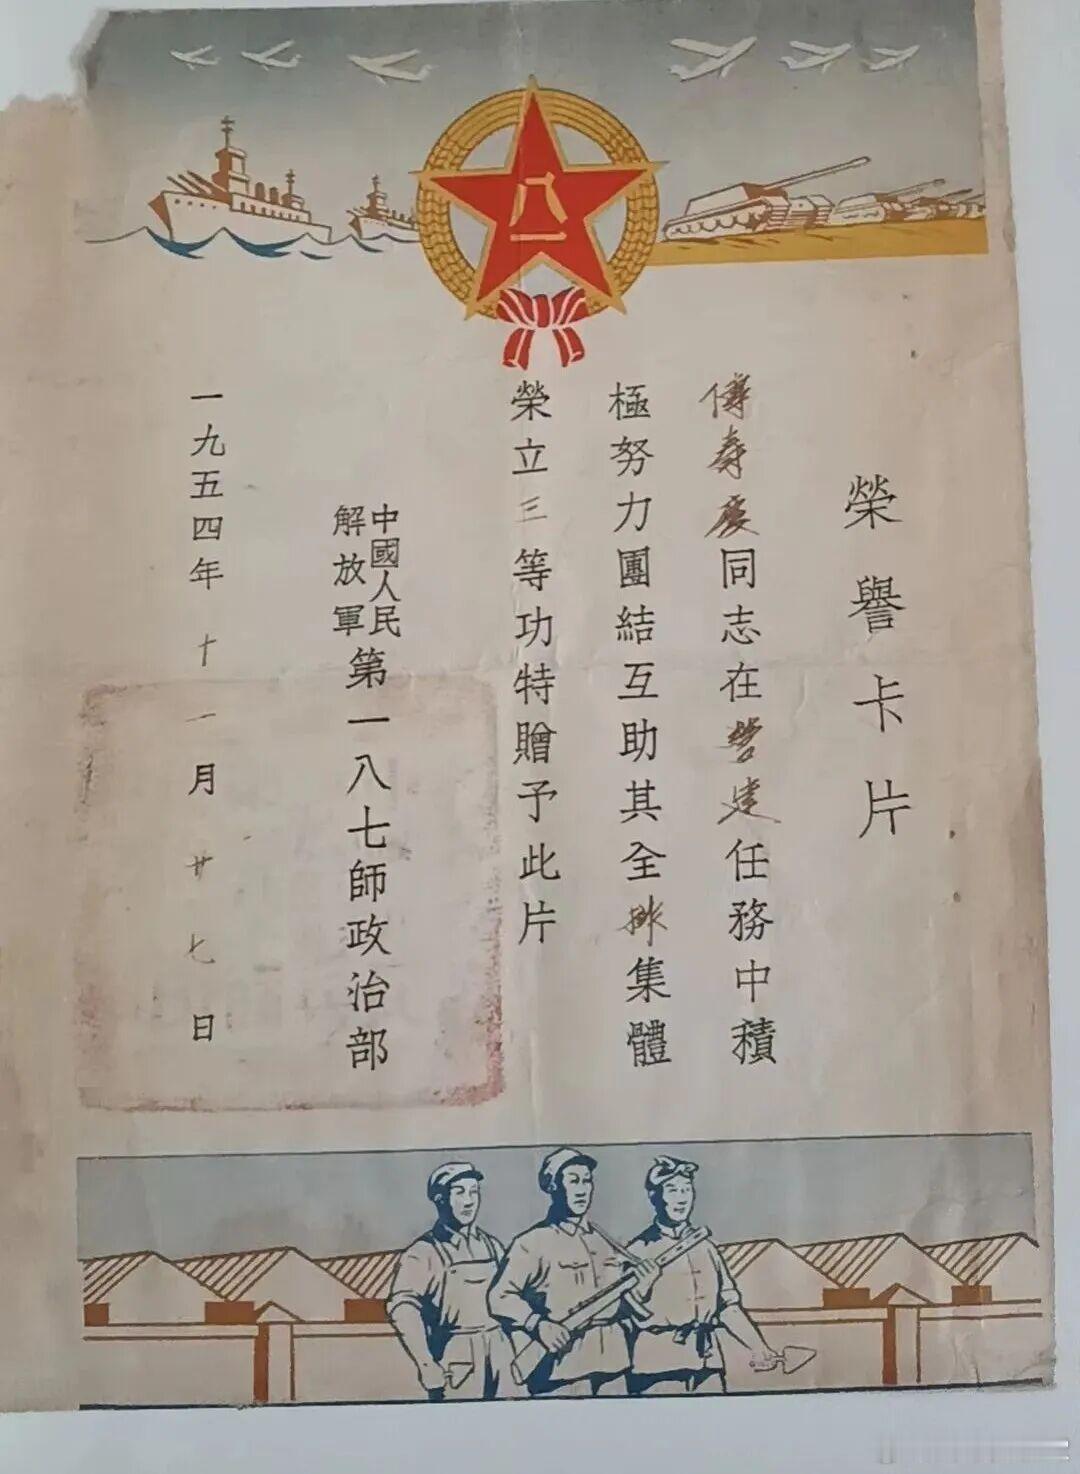 八一
榮譽卡片
傅壽慶同志在營建任務中積
極努力團結互助其全排集體
榮立三等功特贈予此片
中國人民
解放軍
第一八七師政治部
一九五四年十一月廿七日